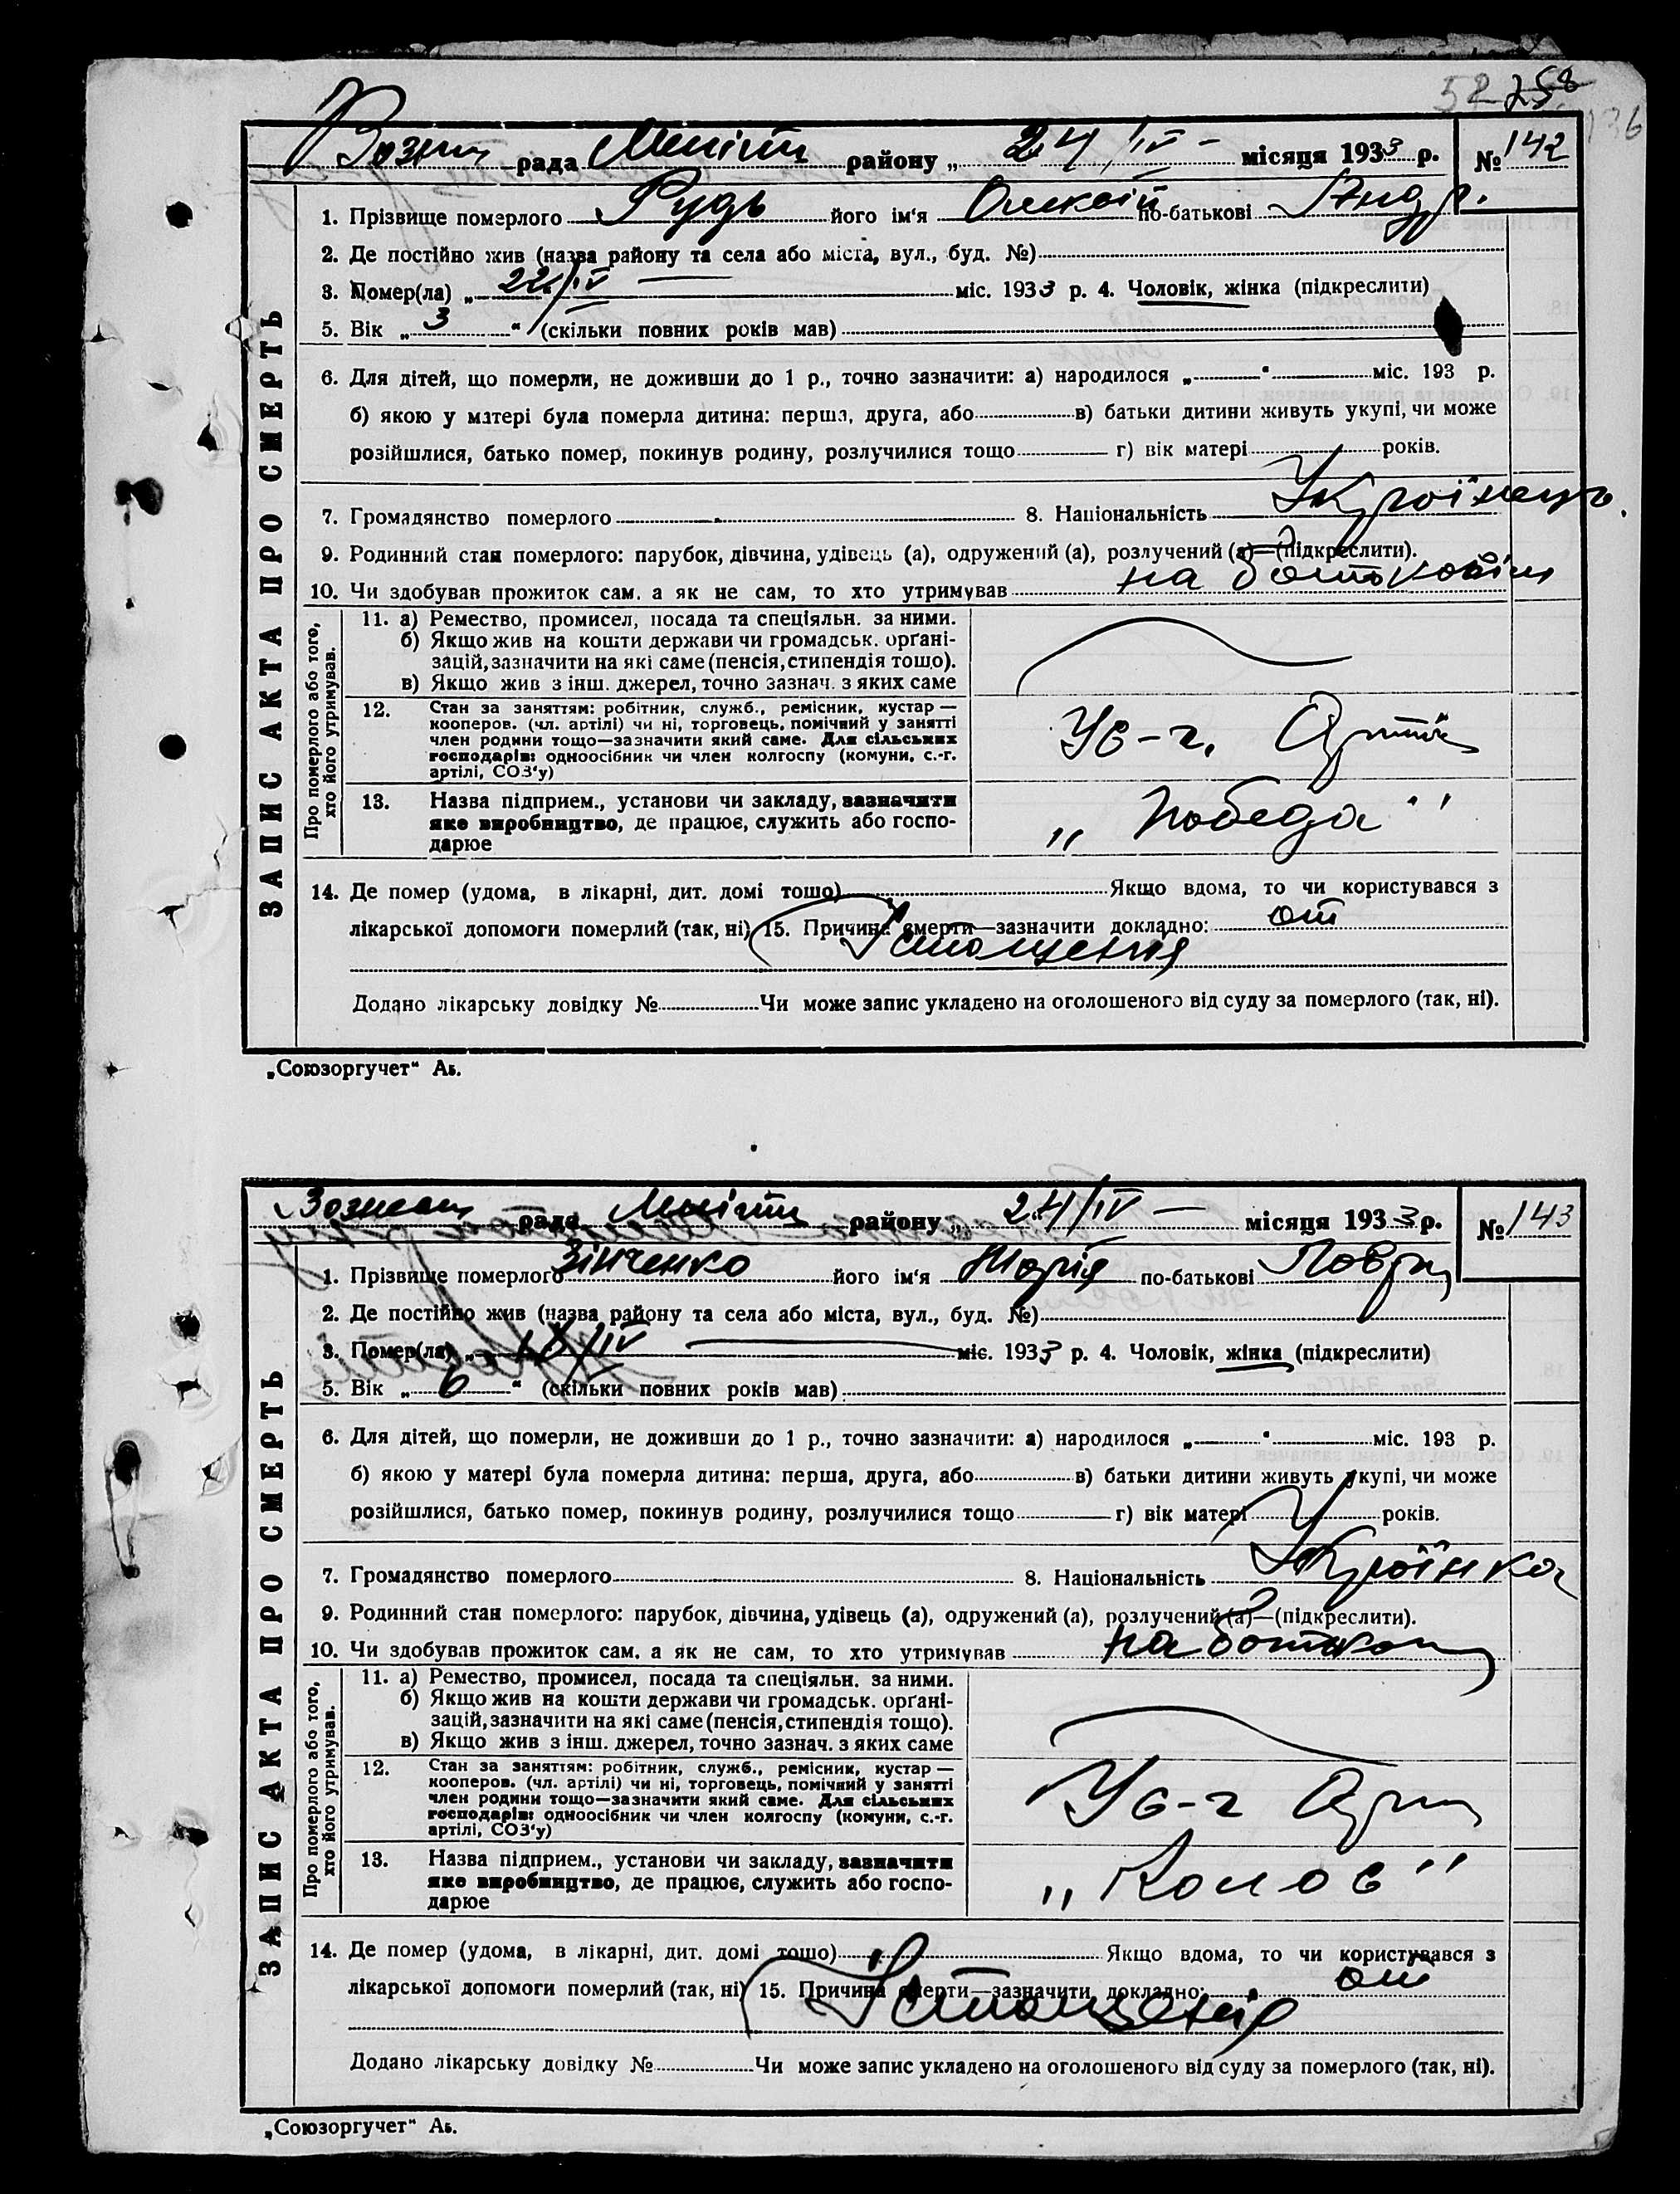 52 758
136
Возн рада Меліт району „ 24/IV – місяця 1933 р. № 142
1. Прізвище померлого Рудь його ім‘я Олексій по-батькові Андр.
2. Де постійно жив (назва району та села або міста, вул., буд. №)
3. Помер(ла) „ 22/IV — міс. 1933 р. 4. Чоловік, жінка (підкреслити)
5. Вік „ 3 “ (скільки повних років мав)
6. Для дітей, що померли, не доживши до 1 р., точно зазначити: а) народилося „ “ міс. 193 р.
б) якою у матері була померла дитина: перша, друга, або в) батьки дитини живуть укупі, чи може
розійшлися, батько помер, покинув родину, розлучилися тощо г) вік матері років.
7. Громадянство померлого 8. Національність Українець.
9. Родинний стан померлого: парубок, дівчина, удівець (а), одружений (а), розлучений (а)—(підкреслити).
10. Чи здобував прожиток сам, а як не сам, то хто утримував на батькові
ЗАПИС АКТА ПРО СМЕРТЬ
Про померлого або того, хто його утримував.
11. а) Ремество, промисел, посада та спеціяльн. за ними.
б) Якщо жив на кошти держави чи громадськ. орґані-
зацій, зазначити на які саме (пенсія, стипендія тощо).
в) Якщо жив з інш. джерел, точно зазнач. з яких саме
12. Стан за заняттям: робітник, служб., ремісник, кустар —
кооперов. (чл. артілі) чи ні, торговець, помічний у занятті
член родини тощо—зазначити який саме. Для сільських
господарів: одноосібник чи член колгоспу (комуни, с.-г.
артілі, СОЗ‘у)
Ув-г. Артіл
13. Назва підприєм., установи чи закладу, зазначити
яке виробництво, де працює, служить або госпо-
дарює
„ Победа "
14. Де помер (удома, в лікарні, дит. домі тощо) Якщо вдома, то чи користувався з
лікарської допомоги померлий (так, ні) 15. Причина смерти—зазначити докладно: от
Істощенія
Додано лікарську довідку № Чи може запис укладено на оголошеного від суду за померлого (так, ні).
„Союзоргучет“ Аь.
Вознесен рада Меліт району „ 24/IV — місяця 1933 р. № 143
1. Прізвище померлого Зінченко його ім‘я Марія по-батькові Павр
2. Де постійно жив (назва району та села або міста, вул., буд. №)
3. Помер(ла) „ /IV — міс. 1933 р. 4. Чоловік, жінка (підкреслити)
5. Вік „ 6 “ (скільки повних років мав)
6. Для дітей, що померли, не доживши до 1 р., точно зазначити: а) народилося „ “ міс. 193 р.
б) якою у матері була померла дитина: перша, друга, або в) батьки дитини живуть укупі, чи може
розійшлися, батько помер, покинув родину, розлучилися тощо г) вік матері років.
7. Громадянство померлого 8. Національність Українка
9. Родинний стан померлого: парубок, дівчина, удівець (а), одружений (а), розлучений (а)—(підкреслити).
10. Чи здобував прожиток сам, а як не сам, то хто утримував на батьков
ЗАПИС АКТА ПРО СМЕРТЬ
Про померлого або того, хто його утримував.
11. а) Ремество, промисел, посада та спеціяльн. за ними.
б) Якщо жив на кошти держави чи громадськ. орґані-
зацій, зазначити на які саме (пенсія, стипендія тощо).
в) Якщо жив з інш. джерел, точно зазнач. з яких саме
12. Стан за заняттям: робітник, служб., ремісник, кустар —
кооперов. (чл. артілі) чи ні, торговець, помічний у занятті
член родини тощо—зазначити який саме. Для сільських
господарів: одноосібник чи член колгоспу (комуни, с.-г.
артілі, СОЗ‘у)
Ув-г Арт
13. Назва підприєм., установи чи закладу, зазначити
яке виробництво, де працює, служить або госпо-
дарює
„ Колос "
14. Де помер (удома, в лікарні, дит. домі тощо) Якщо вдома, то чи користувався з
лікарської допомоги померлий (так, ні) 15. Причина смерти—зазначити докладно: от
Істощенія
Додано лікарську довідку № Чи може запис укладено на оголошеного від суду за померлого (так, ні).
„Союзоргучет“ Аь.